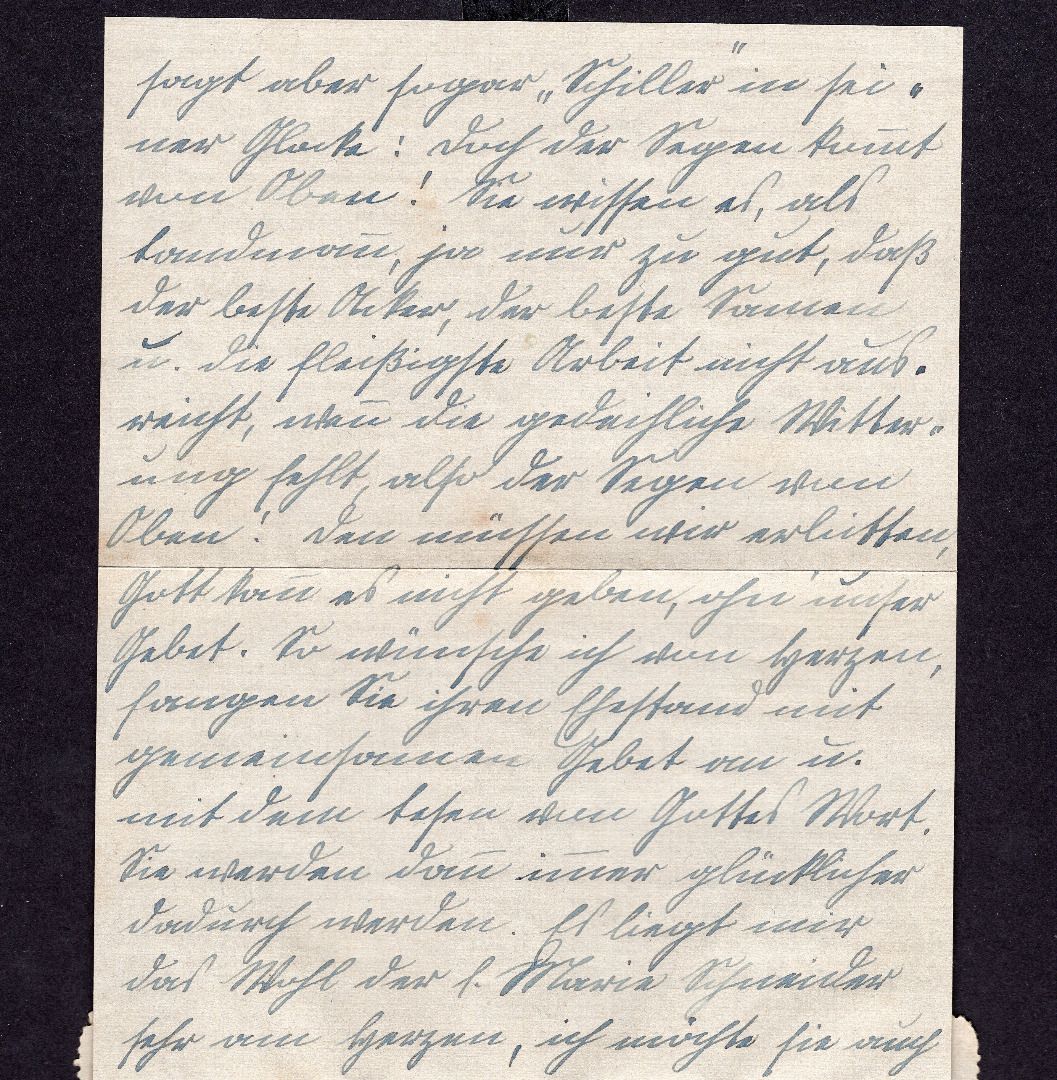 sagt aber sogar „Schiller" in sei-
ner Glocke: Doch der Segen kom̅t
von Oben! Sie wissen es, als
Landman̅, ja nur zu gut, daß
der beste Acker, der beste Samen
u. die fleißigste Arbeit nicht aus-
reicht, wen̅ die gedeihliche Witter-
ung fehlt, also der Segen von
Oben! Den müssen wir erbitten,
Gott kan̅ es nicht geben, ohn' unser
Gebet. So wünsche ich von Herzen,
fangen Sie ihren Ehestand mit
gemeinsamen Gebet an u.
mit dem Lesen von Gottes Wort.
Sie werden dan̅ im̅er glücklicher
dadurch werden. Es liegt mir
das Wohl der l. Marie Schneider
sehr am Herzen, ich möchte sie auch